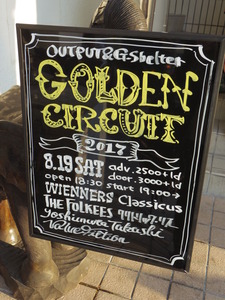 OUTPUT&G.Shelter
GOLDEN
CIRCUIT
2017
8.19 SAT adv.2500+1d
door.3000+1d
open 18:30 start 19:00→
WIENNERS Classicus
THE FOLKEES
Yoshimura Takashi